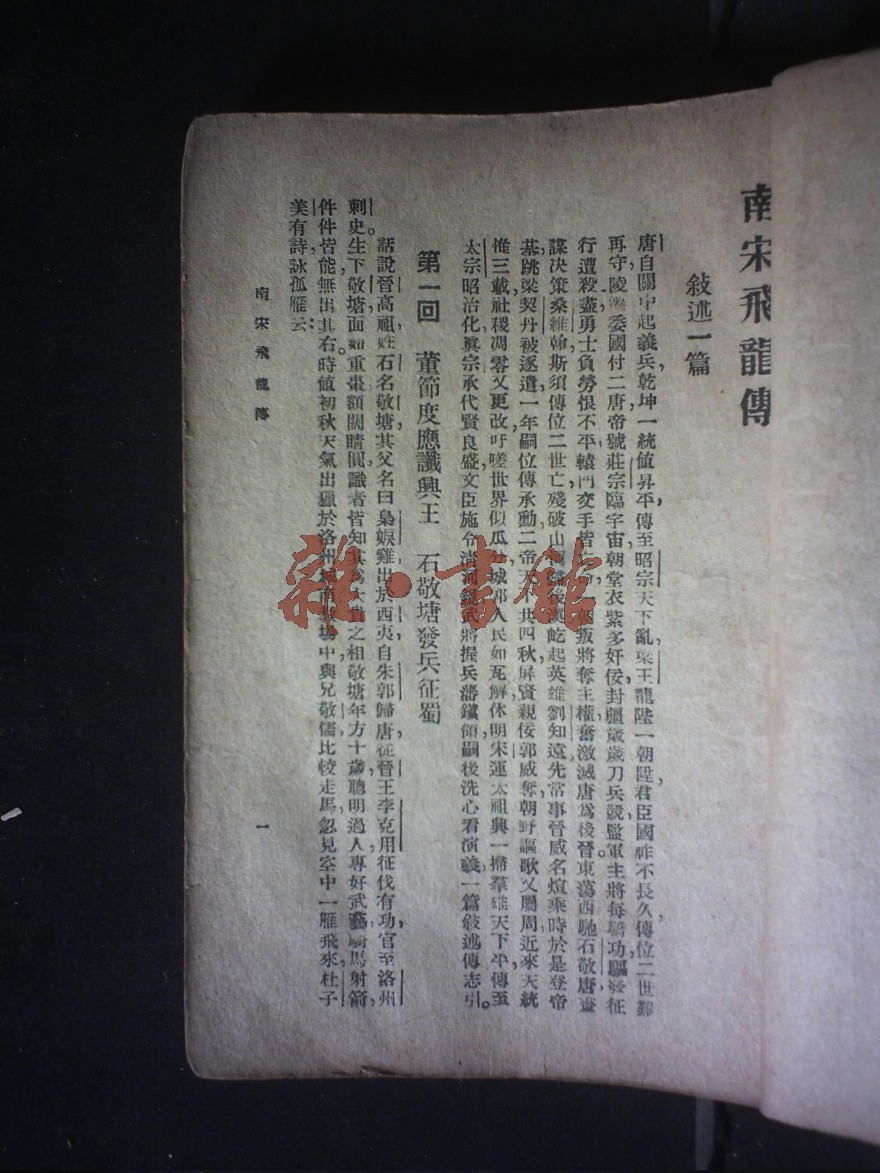 南宋飛龍傳
敍述一篇
唐自關中起義兵，乾坤一統值昇平，傳至昭宗天下亂，梁王龍陞一朝陞，君臣國祚不長久，傳位二世難
再守，陵 委國付二唐，帝號莊宗臨宇宙，朝堂衣紫多奸佞，封疆歲歲刀兵競，監軍主將每驕功，驅 征
行遭殺盡，勇士負勞恨不平，轅門交手皆 叛將奪主權，奮激滅唐爲後晉，東蕩西馳石敬唐，畫
謀決策桑維翰，斯須傳位二世亡，殘破山河 後漢屹起英雄劉知遠，先常事晉威名煊，乘時於是登帝
基，跳梁契丹被逐遣，一年嗣位傳承勳，二帝天下共四秋，屏賢親佞郭威奪，朝野謳歌又屬周，近來天統
惟三載，社稷凋零又更改，吁嗟世界似瓜分，城郭人民如瓦解，休明宋運太祖興，一掃羣雄天下平，傳至
太宗昭治化，眞宗承代賢良盛，文臣施令 武將握兵藩鎭領，嗣後洗心看演義，一篇敍述傳志引。
第一回　董節度應讖興王　石敬塘發兵征蜀
話說晉高祖，姓石名敬塘，其父名曰梟娘雞，出於西夷，自朱郭歸唐，從晉王李克用征伐有功，官至洛州
刺史。生下敬塘，面如重棗，額闊睛圓，識者皆知其爲大貴之相，敬塘年方十歲，聰明過人，專好武藝，騎馬射箭，
件件皆能，無出其右。時値初秋天氣，出獵於洛州城南敎場中，與兄敬儒比較走馬，忽見空中一雁飛來，杜子
美有詩詠孤雁云：
南宋飛龍傳
一
雜·書館